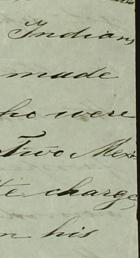 Indians
made
who were
Two Mex
charge
his